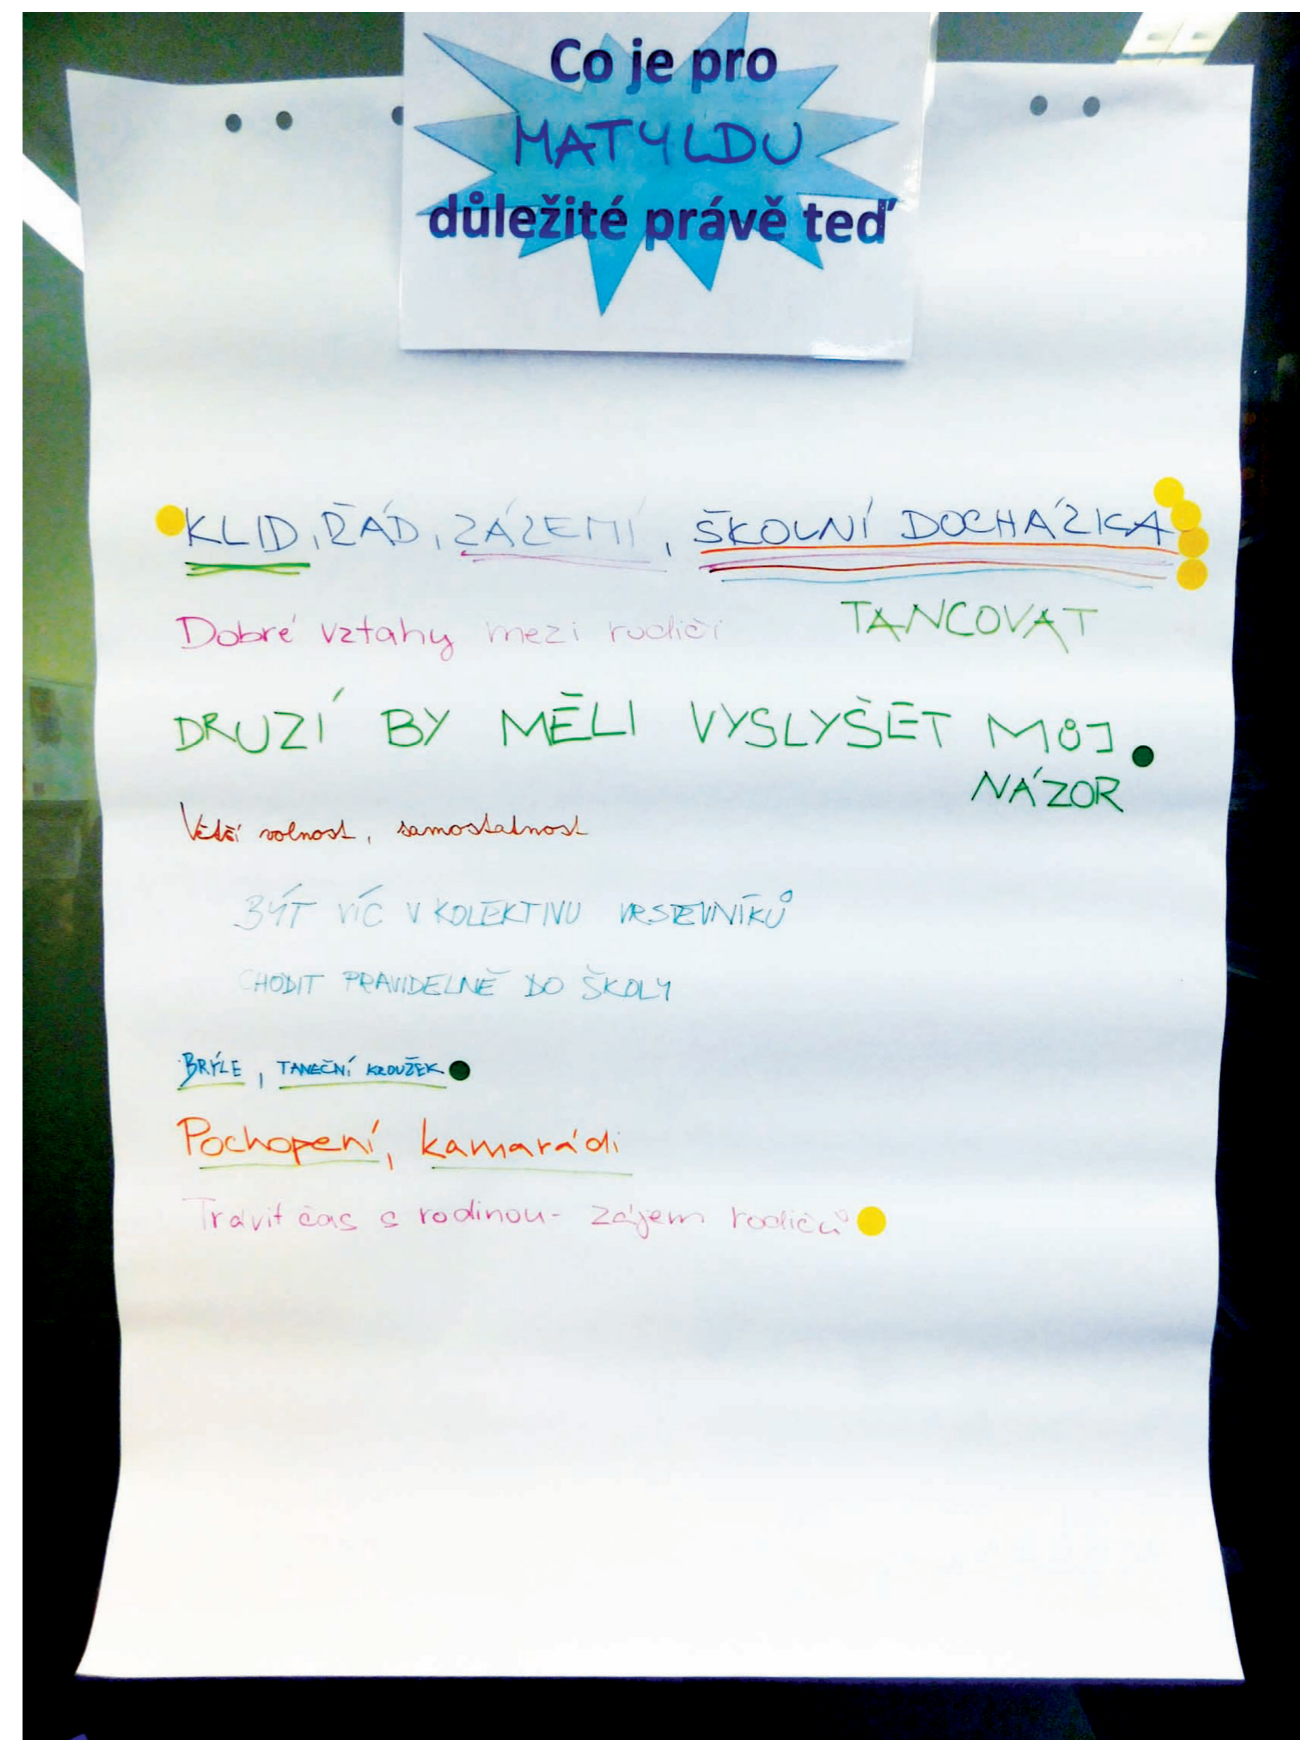 Co je pro
MATYLDU
důležité právě teď
KLID, ŘÁD, ZÁZEMÍ, ŠKOLNÍ DOCHÁZKA
Dobré vztahy mezi rodiči
TANCOVAT
DRUZÍ BY MĚLI VYSLYŠET MŮJ
NÁZOR
Větší volnost, samostatnost
BÝT VÍC V KOLEKTIVU VRSTEVNÍKŮ
CHODIT PRAVIDELNĚ DO ŠKOLY
BRÝLE, TANEČNÍ KROUŽEK
Pochopení, kamarádi
Trávit čas s rodinou - zájem rodičů